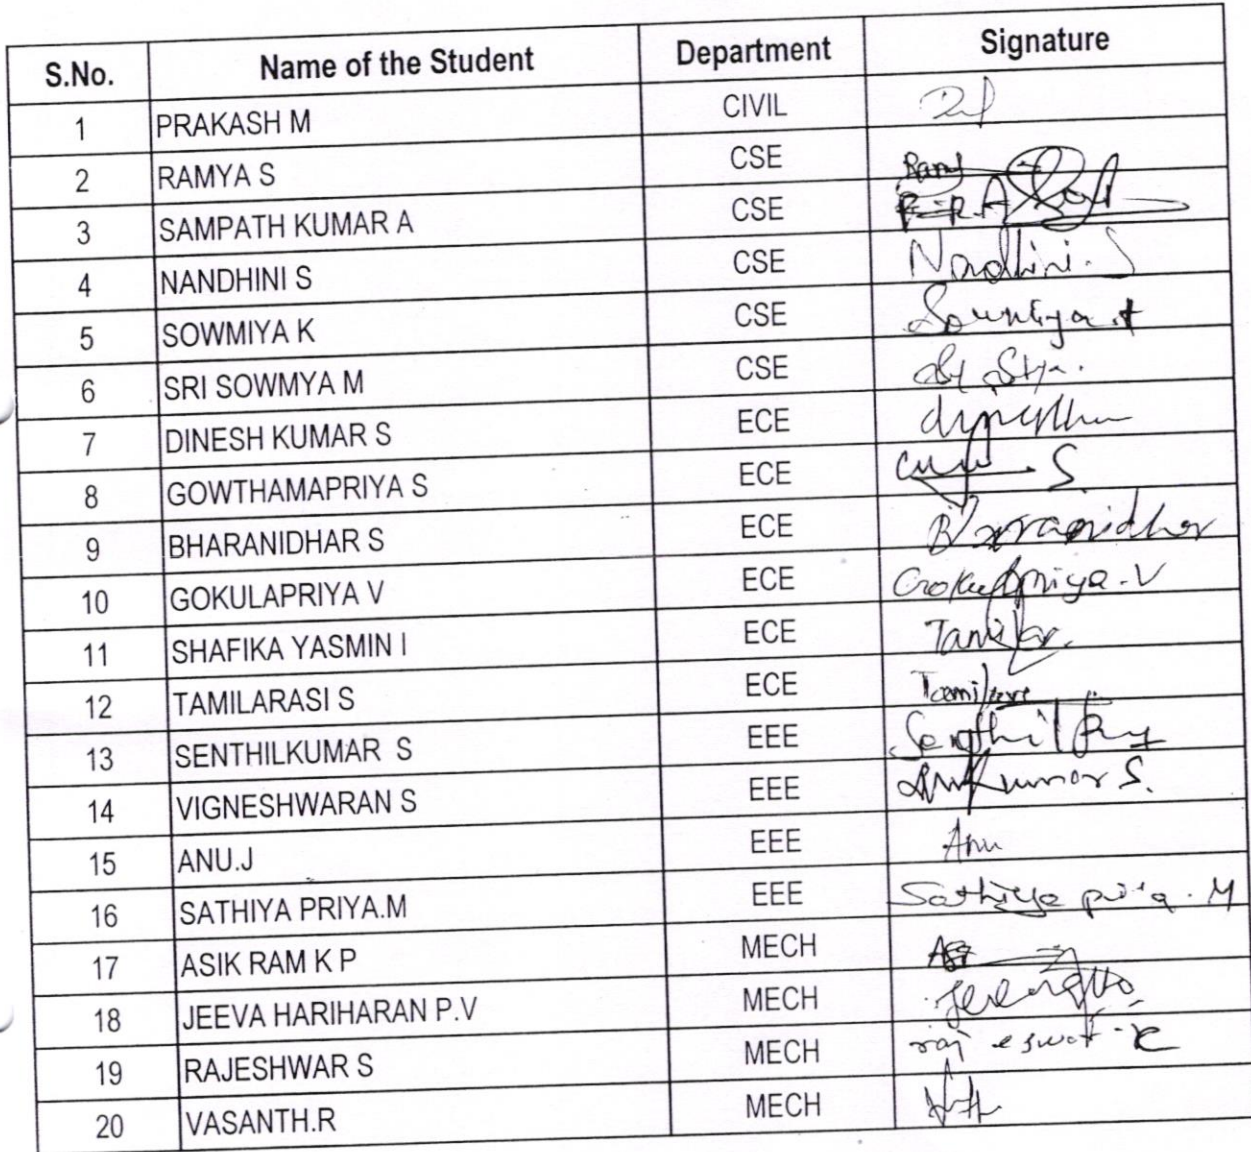 S.No. Name of the Student Department Signature
1 PRAKASH M CIVIL
2 RAMYA S CSE
3 SAMPATH KUMAR A CSE
4 NANDHINI S CSE Nandhini. S
5 SOWMIYA K CSE
6 SRI SOWMYA M CSE
7 DINESH KUMAR S ECE
8 GOWTHAMAPRIYA S ECE
9 BHARANIDHAR S ECE Bharanidhar
10 GOKULAPRIYA V ECE
11 SHAFIKA YASMIN I ECE
12 TAMILARASI S ECE
13 SENTHILKUMAR S EEE
14 VIGNESHWARAN S EEE
15 ANU.J EEE Anu
16 SATHIYA PRIYA.M EEE
17 ASIK RAM K P MECH
18 JEEVA HARIHARAN P.V MECH
19 RAJESHWAR S MECH
20 VASANTH.R MECH